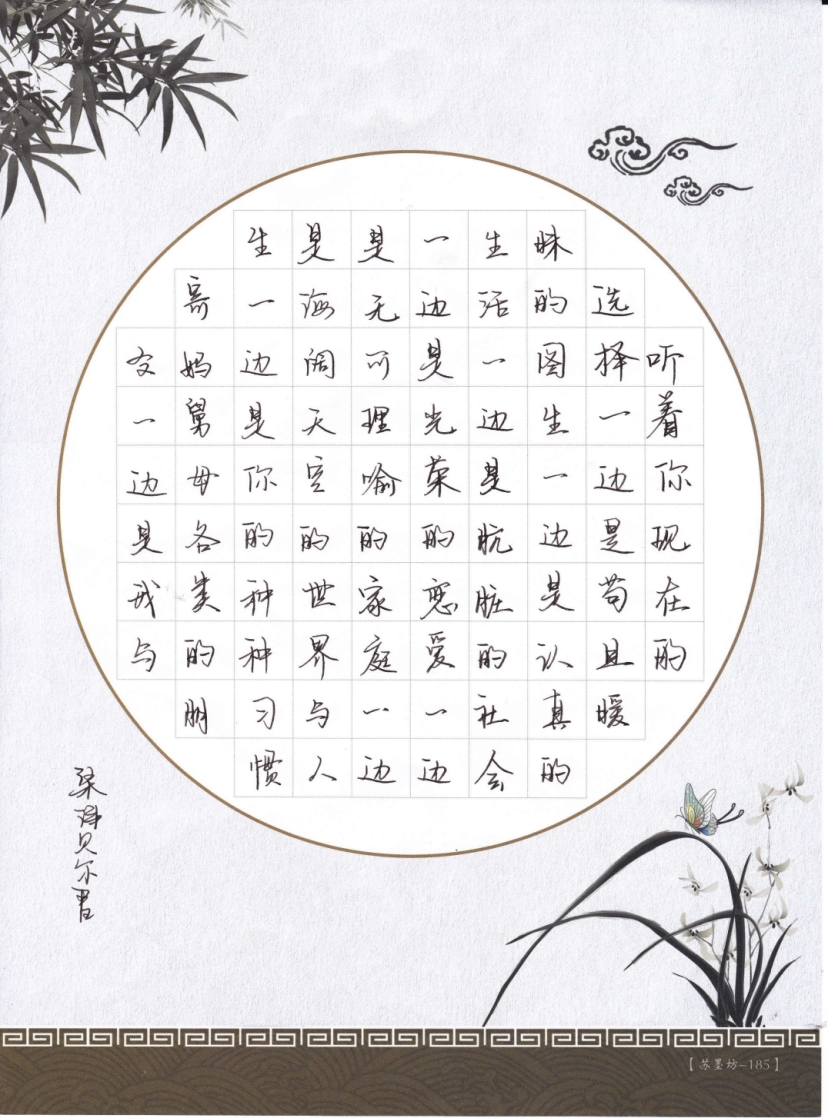 听着你现在的
选择一边是苟且暖
昧的图生一边是认真的
生活一边是肮脏的社会
一边是光荣的恋爱一边
是无可理喻的家庭一边
是海阔天空的世界与人
生一边是你的种种习惯
寄妈舅母各类的朋
友一边是我与
梁贝尔书
【苏墨坊-185】